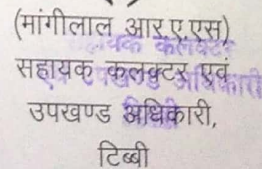 (मांगीलाल आर.ए.एस)
सहायक कलक्टर एवं
उपखण्ड अधिकारी,
टिब्बी